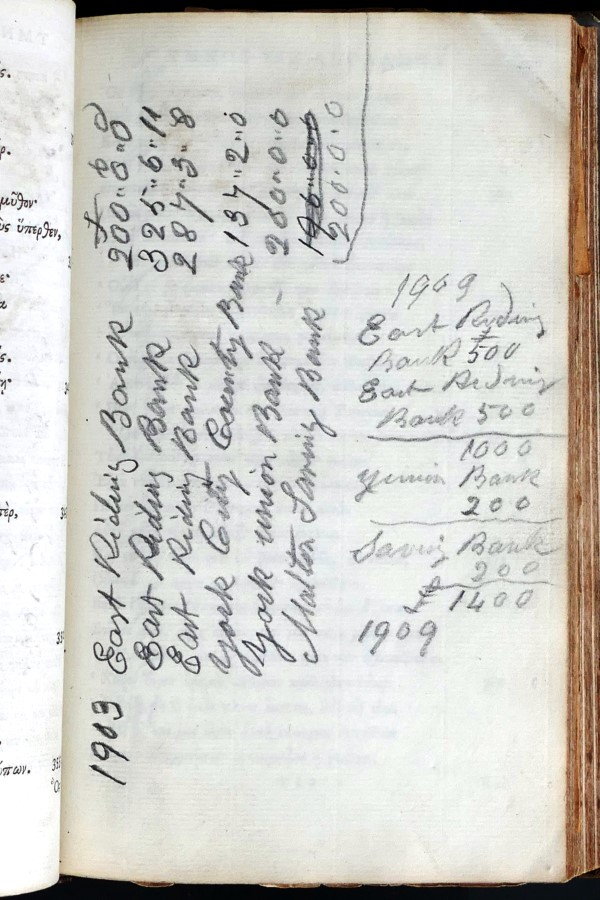 1903 East Riding Bank 200"0"0
East Riding Bank 325"6"11
East Riding Bank 287"3"8
York City County Bank 137"2"0
York union Bank - 200"0"0
Malton Saving Bank
200.0.0
1909
East Ryding
Bank £500
East Riding
Bank 500
1000
yunion Bank
200
Saving Bank
200
£ 1400
1909
ς.
ρ.
μῦθον·
ὕπερθεν,
ς.